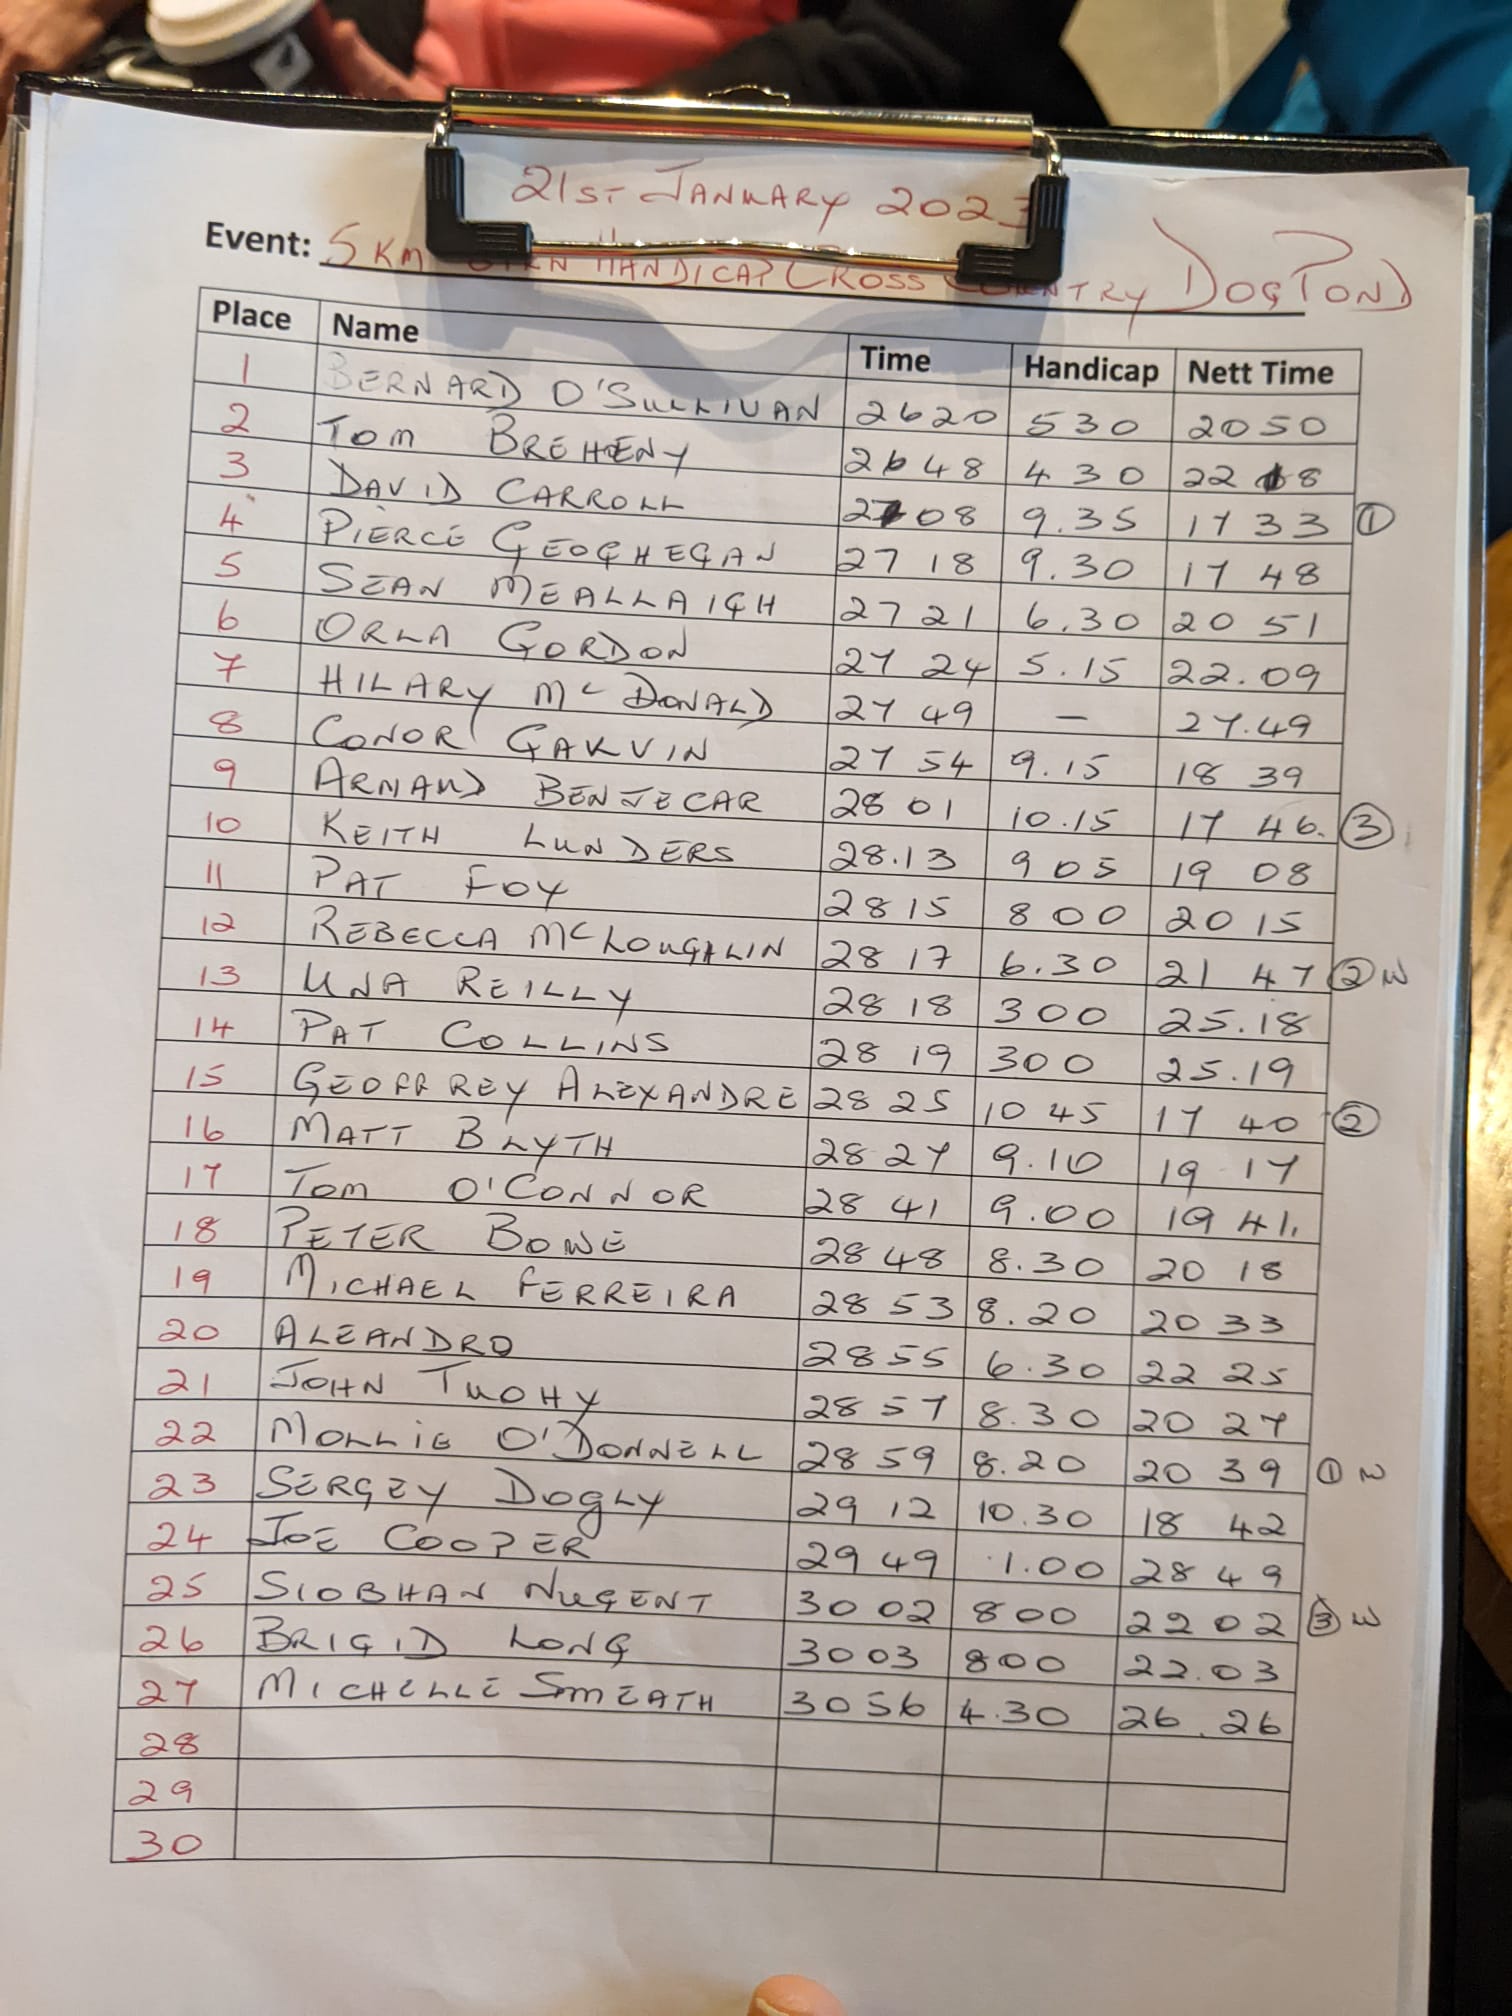 21ST JANUARY 2023
Event: 5KM HANDICAP CROSS COUNTRY DOG POND
Place Name Time Handicap Nett Time
1 BERNARD O'SULLIVAN 2620 530 2050
2 TOM BREHENY 2648 4 30 22 18
3 DAVID CARROLL 27 08 9.35 17 33 ①
4 PIERCE GEOGHEGAN 27 18 9.30 17 48
5 SEAN MEALLAIGH 27 21 6.30 20 51
6 ORLA GORDON 27 24 5.15 22.09
7 HILARY McDONALD 27 49 — 27.49
8 CONOR GARVIN 27 54 9.15 18 39
9 ARMAND BENJECAR 28 01 10.15 17 46. ③
10 KEITH LUNDERS 28.13 9 05 19 08
11 PAT FOY 28 15 8 00 20 15
12 REBECCA McLOUGHLIN 28 17 6.30 21 47 ② W
13 UNA REILLY 28 18 300 25.18
14 PAT COLLINS 28 19 300 25.19
15 GEOFFREY ALEXANDRE 28 25 10 45 17 40 ②
16 MATT BLYTH 28 27 9.10 19 17
17 TOM O'CONNOR 28 41 9.00 19 41.
18 PETER BOWE 28 48 8.30 20 18
19 MICHAEL FERREIRA 28 53 8.20 20 33
20 ALEANDRO 28 55 6.30 22 25
21 JOHN TUOHY 28 57 8.30 20 27
22 MOLLIE O'DONNELL 28 59 8.20 20 39 ① W
23 SERGEY DOGLY 29 12 10.30 18 42
24 JOE COOPER 29 49 1.00 28 49
25 SIOBHAN NUGENT 30 02 800 22 02 ③ W
26 BRIGID LONG 30 03 800 22.03
27 MICHELLE SMEATH 30 56 4.30 26.26
28
29
30